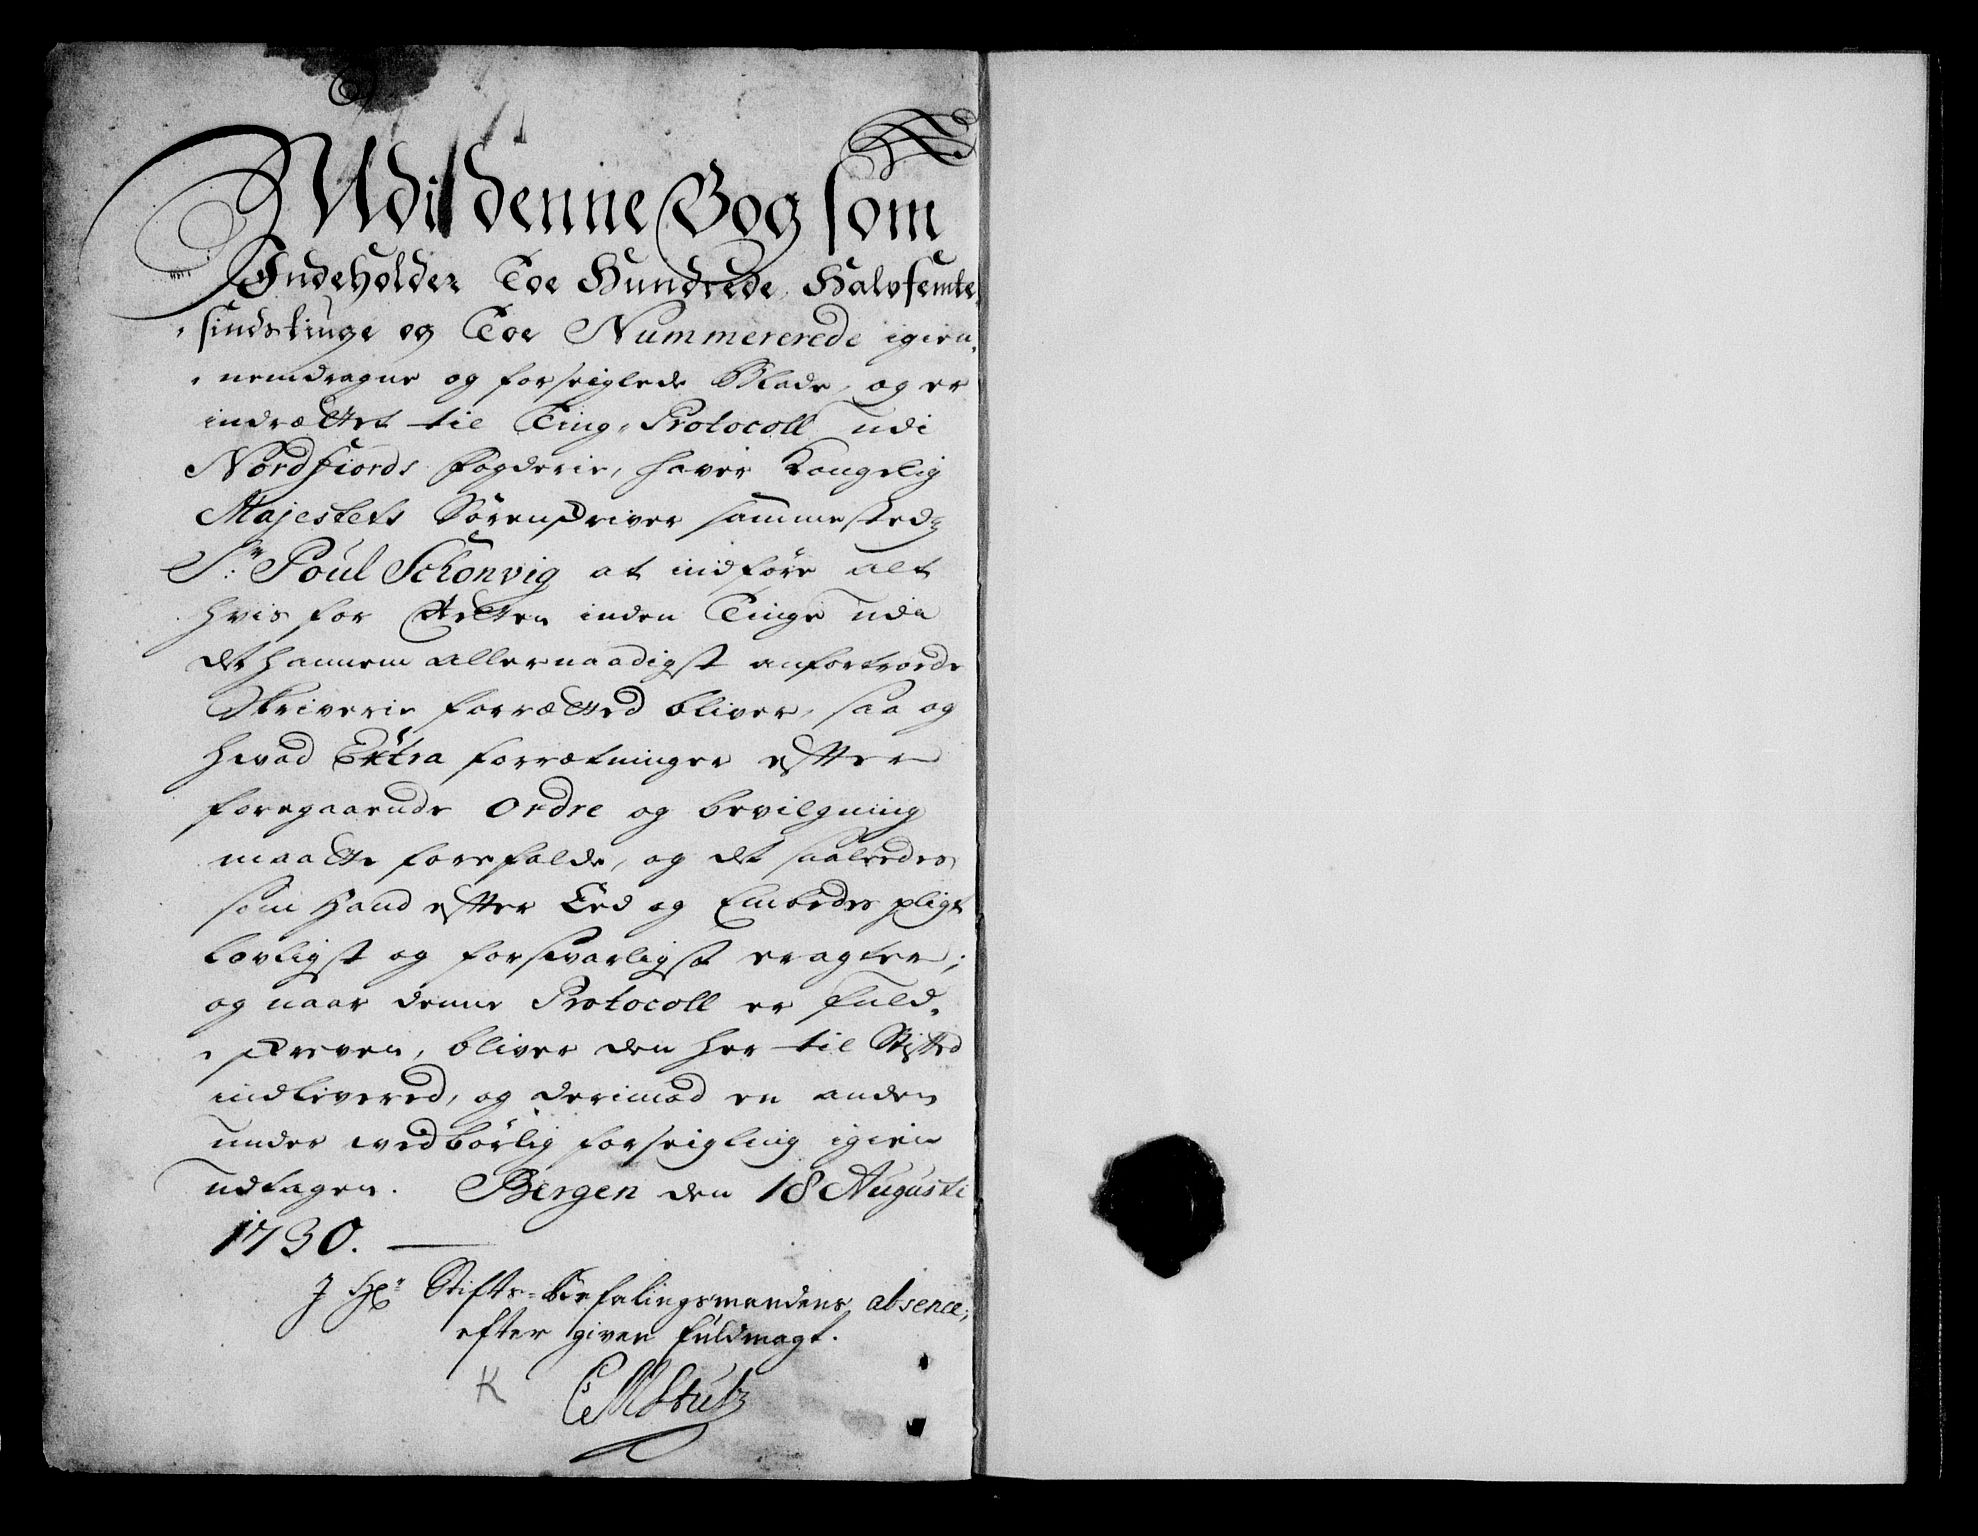 Udi denne Bog som
Indeholder Toe Hundrede Halvfemte,
,sindstiuge og Toe Nummererede igien,
,nemdragne og forseiglede Blade, og er
indrættet til Ting-Protocoll udi
Nordfiords fogderie, haver Kongelig
Majestets Sörenskriver sammesteds
Sr: Poul Schönvig at indföre alt
hvis for Retten inden Tinge udi
det hannem allernaadigst anfortroede
Skriverie forrætted bliver, saa og
hvad Extra forrætninger efter
foregaaende Ordre og bevilgning
maatte forefalde, og det saaledes
som Hand efter Eed og Embedes pligt
lovligst og forsvarligst eragter;
og naar denne Protocoll er fuld,
,skreven, bliver den her til Stifted
indlevered, og derimod en anden
under wedbörlig forseigling igien
udtagen. Bergen den 18 Augusti
1730.
J Hr Stifts-Befalingsmandens absence,
efter given fuldmagt.
K CMStub